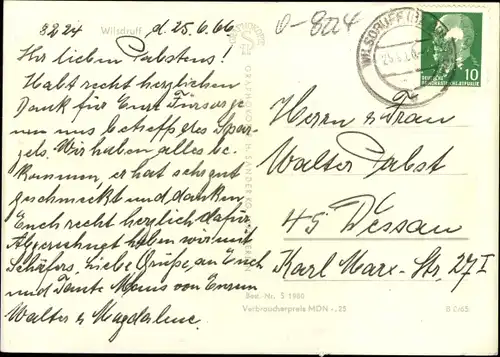 8224 Wilsdruff d. 25.6.66
Ihr lieben Pabstens!
Habt recht herzlichen
Dank für Eure Fürsorge
um uns betreff des Spar-
gels. Wir haben alles be-
kommen, er hat sehr gut
geschmeckt und danken
Euch recht herzlich dafür
Abgerechnet haben wir mit
Schäfers. Liebe Grüße, an Euch
und Tante Maus von Euren
Walter u Magdalene.
0-824
WILSDRUFF
DEUTSCHE
DEMOKRATISCHE REPUBLIK
10
Herrn u Frau
Walter Pabst
45 Dessau
Karl Marx-Str. 27 I
Best.-Nr. S 1980
Verbraucherpreis MDN -,25
B 2/65